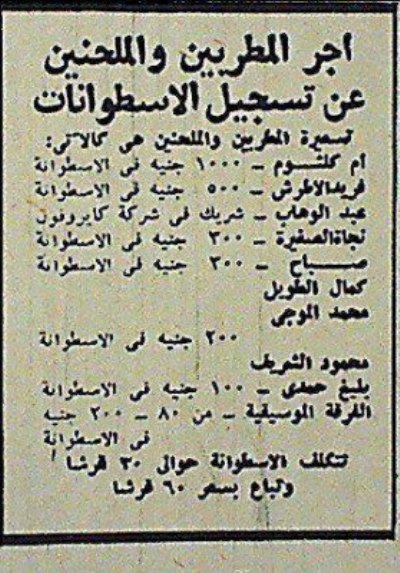 اجر المطربين والملحنين
عن تسجيل الاسطوانات
تسعيرة المطربين والملحنين هى كالآتى:
أم كلثوم – ١٠٠٠ جنيه فى الاسطوانة
فريد الاطرش – ٥٠٠ جنيه فى الاسطوانة
عبد الوهاب – شريك فى شركة كايروفون
نجاة الصغيرة – ٣٠٠ جنيه فى الاسطوانة
صباح – ٣٠٠ جنيه فى الاسطوانة
كمال الطويل
محمد الموجى
٢٠٠ جنيه فى الاسطوانة
محمود الشريف
بليغ حمدى – ١٠٠ جنيه فى الاسطوانة
الفرقة الموسيقية – من ٨٠ – ٢٠٠ جنيه
فى الاسطوانة
تتكلف الاسطوانة حوالى ٣٠ قرشا
وتباع بسعر ٦٠ قرشا